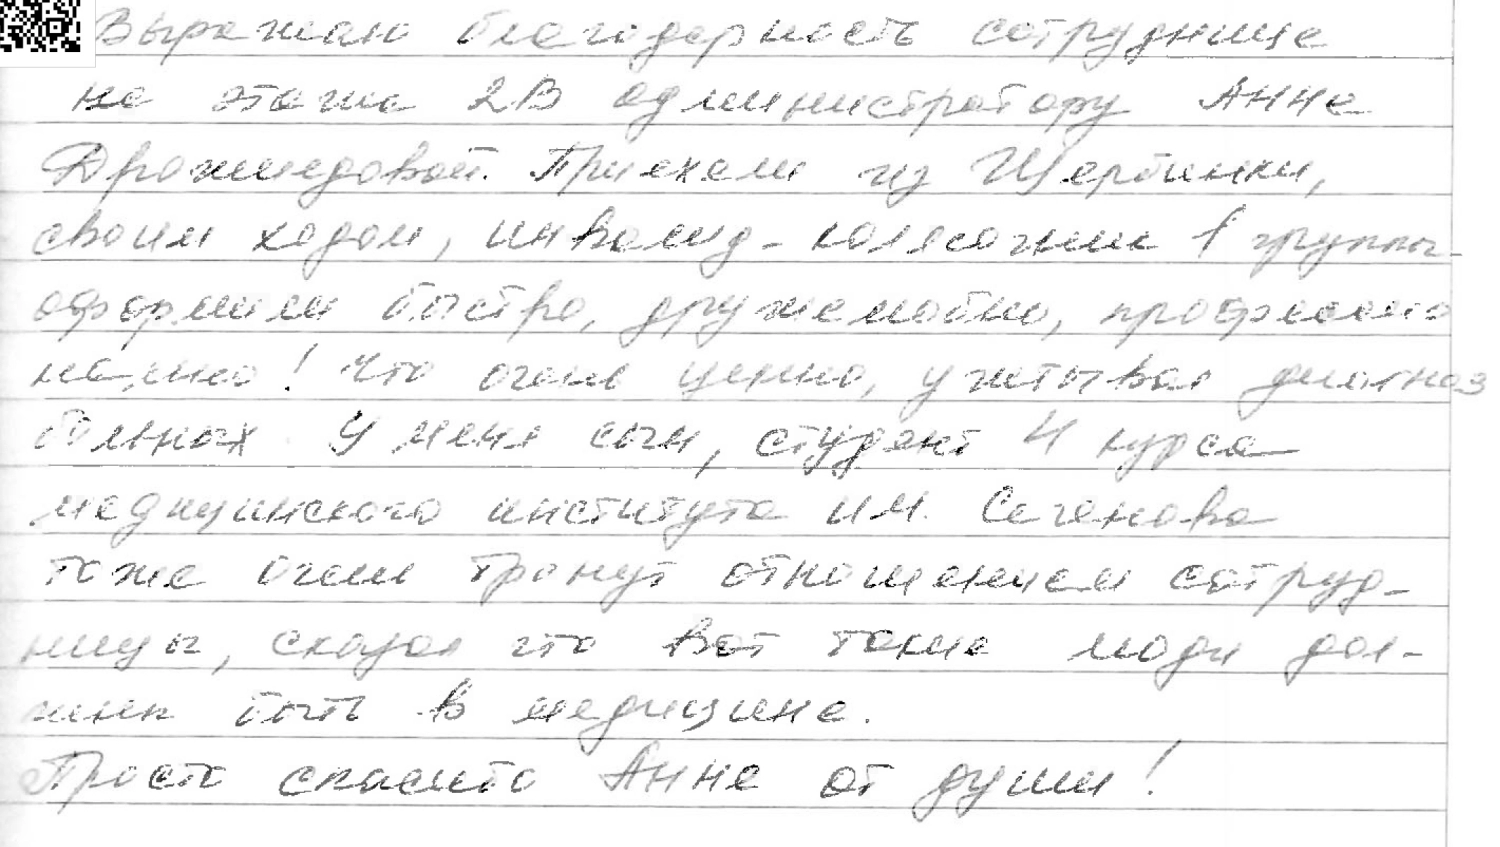 Выражаю благодарность сотруднице
на этаже 2В администратору Анне
Приехали из Щербинки,
своим ходом, инвалид-колясочник 1 группы-
оформили быстро, дружелюбно, профессио
нально! Что очень ценно, учитывая диагноз
больных. У меня сын, студент 4 курса
медицинского института им. Сеченова
тоже очень тронут отношением сотруд-
ницы, сказал что вот такие люди дол-
жны быть в медицине.
Просто спасибо Анне от души!